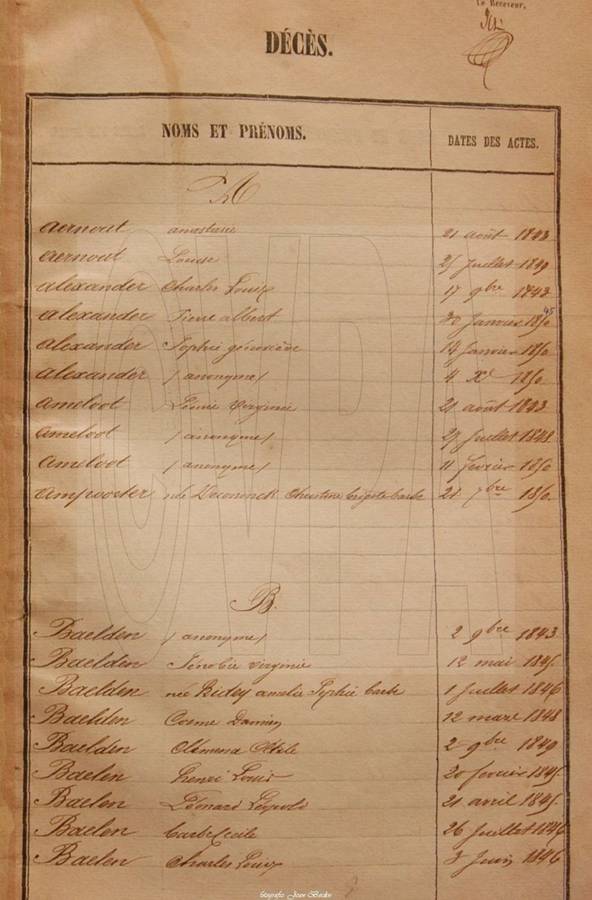 Le Receveur,
DÉCÈS.
NOMS ET PRÉNOMS. DATES DES ACTES.
A
Aernout anastasie 21 août 1843
Aernout Louise 25 Juillet 1849
Alexander Charles Louis 17 9bre 1842
Alexander Pierre albert 20 Janvier 1850
Alexander Sophie geneviève 14 Janvier 1850
Alexander (anonyme) 4 Xe 1850
Ameloot Virginie 21 août 1843
Ameloot (anonyme) 27 Juillet 1848
Ameloot (anonyme) 11 février 1850
Ampooster née Deconinck Christine brigite barbe 21 7bre 1850.
B.
Baelden (anonyme) 2 9bre 1843.
Baelden Zénobie virginie 12 mai 1845
Baelden née Ridey amelie Sophie barbe 1 Juillet 1846
Baelden Cosme Damien 12 mars 1848
Baelden 2 9bre 1849
Baelen henri Louis 20 fevrier 1845.
Baelen Léonard Léopold 21 avril 1845.
Baelen 26 Juillet 1846
Baelen Charles Louis 3 Juin 1846
CVPA